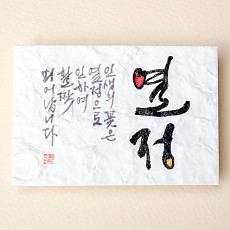 열정
인생의 꽃은
열정으로
인하여
활짝
피어납니다